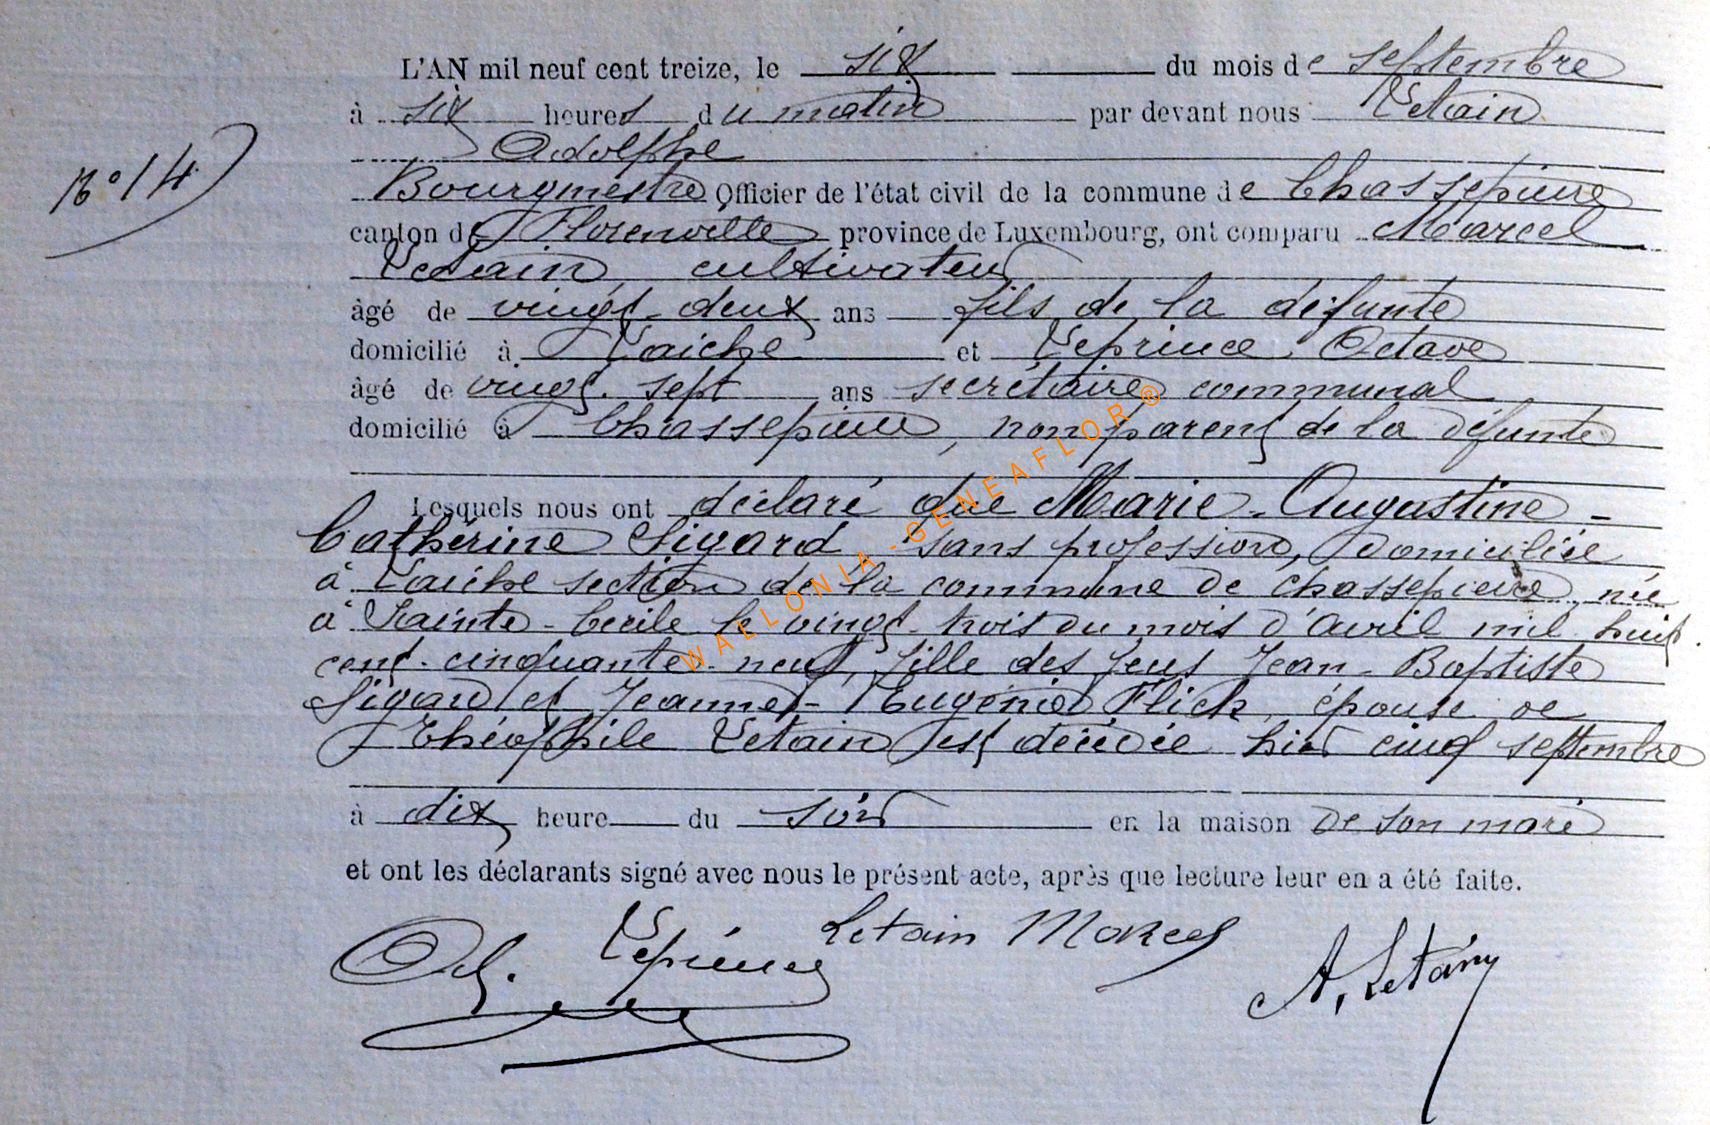 L'AN mil neuf cent treize, le six du mois de septembre
à six heures du matin par devant nous Letain
Adolphe
N° 14
Bourgmestre Officier de l'état civil de la commune de Chassepierre
canton de Florenville province de Luxembourg, ont comparu Marcel
Letain, cultivateur
âgé de vingt-deux ans fils de la défunte
domicilié à Laiche et Leprince, Octave
âgé de vingt-sept ans secrétaire communal
domicilié à Chassepierre, non parent de la défunte
Lesquels nous ont déclaré que Marie-Augustine-
Catherine Sigard sans profession, domiciliée
à Laiche section de la commune de Chassepierre, née
à Sainte-Cécile le vingt-trois du mois d'avril mil huit
cent-cinquante-neuf, fille des feus Jean-Baptiste
Sigard et Jeanne-Eugénie Flick, épouse de
Théophile Letain est décédée hier cinq septembre
à dix heure du soir en la maison de son mari
et ont les déclarants signé avec nous le présent acte, après que lecture leur en a été faite.
Oct. Leprince Letain Marcel A. Letain
WALLONIA-GENEAFLOR ®